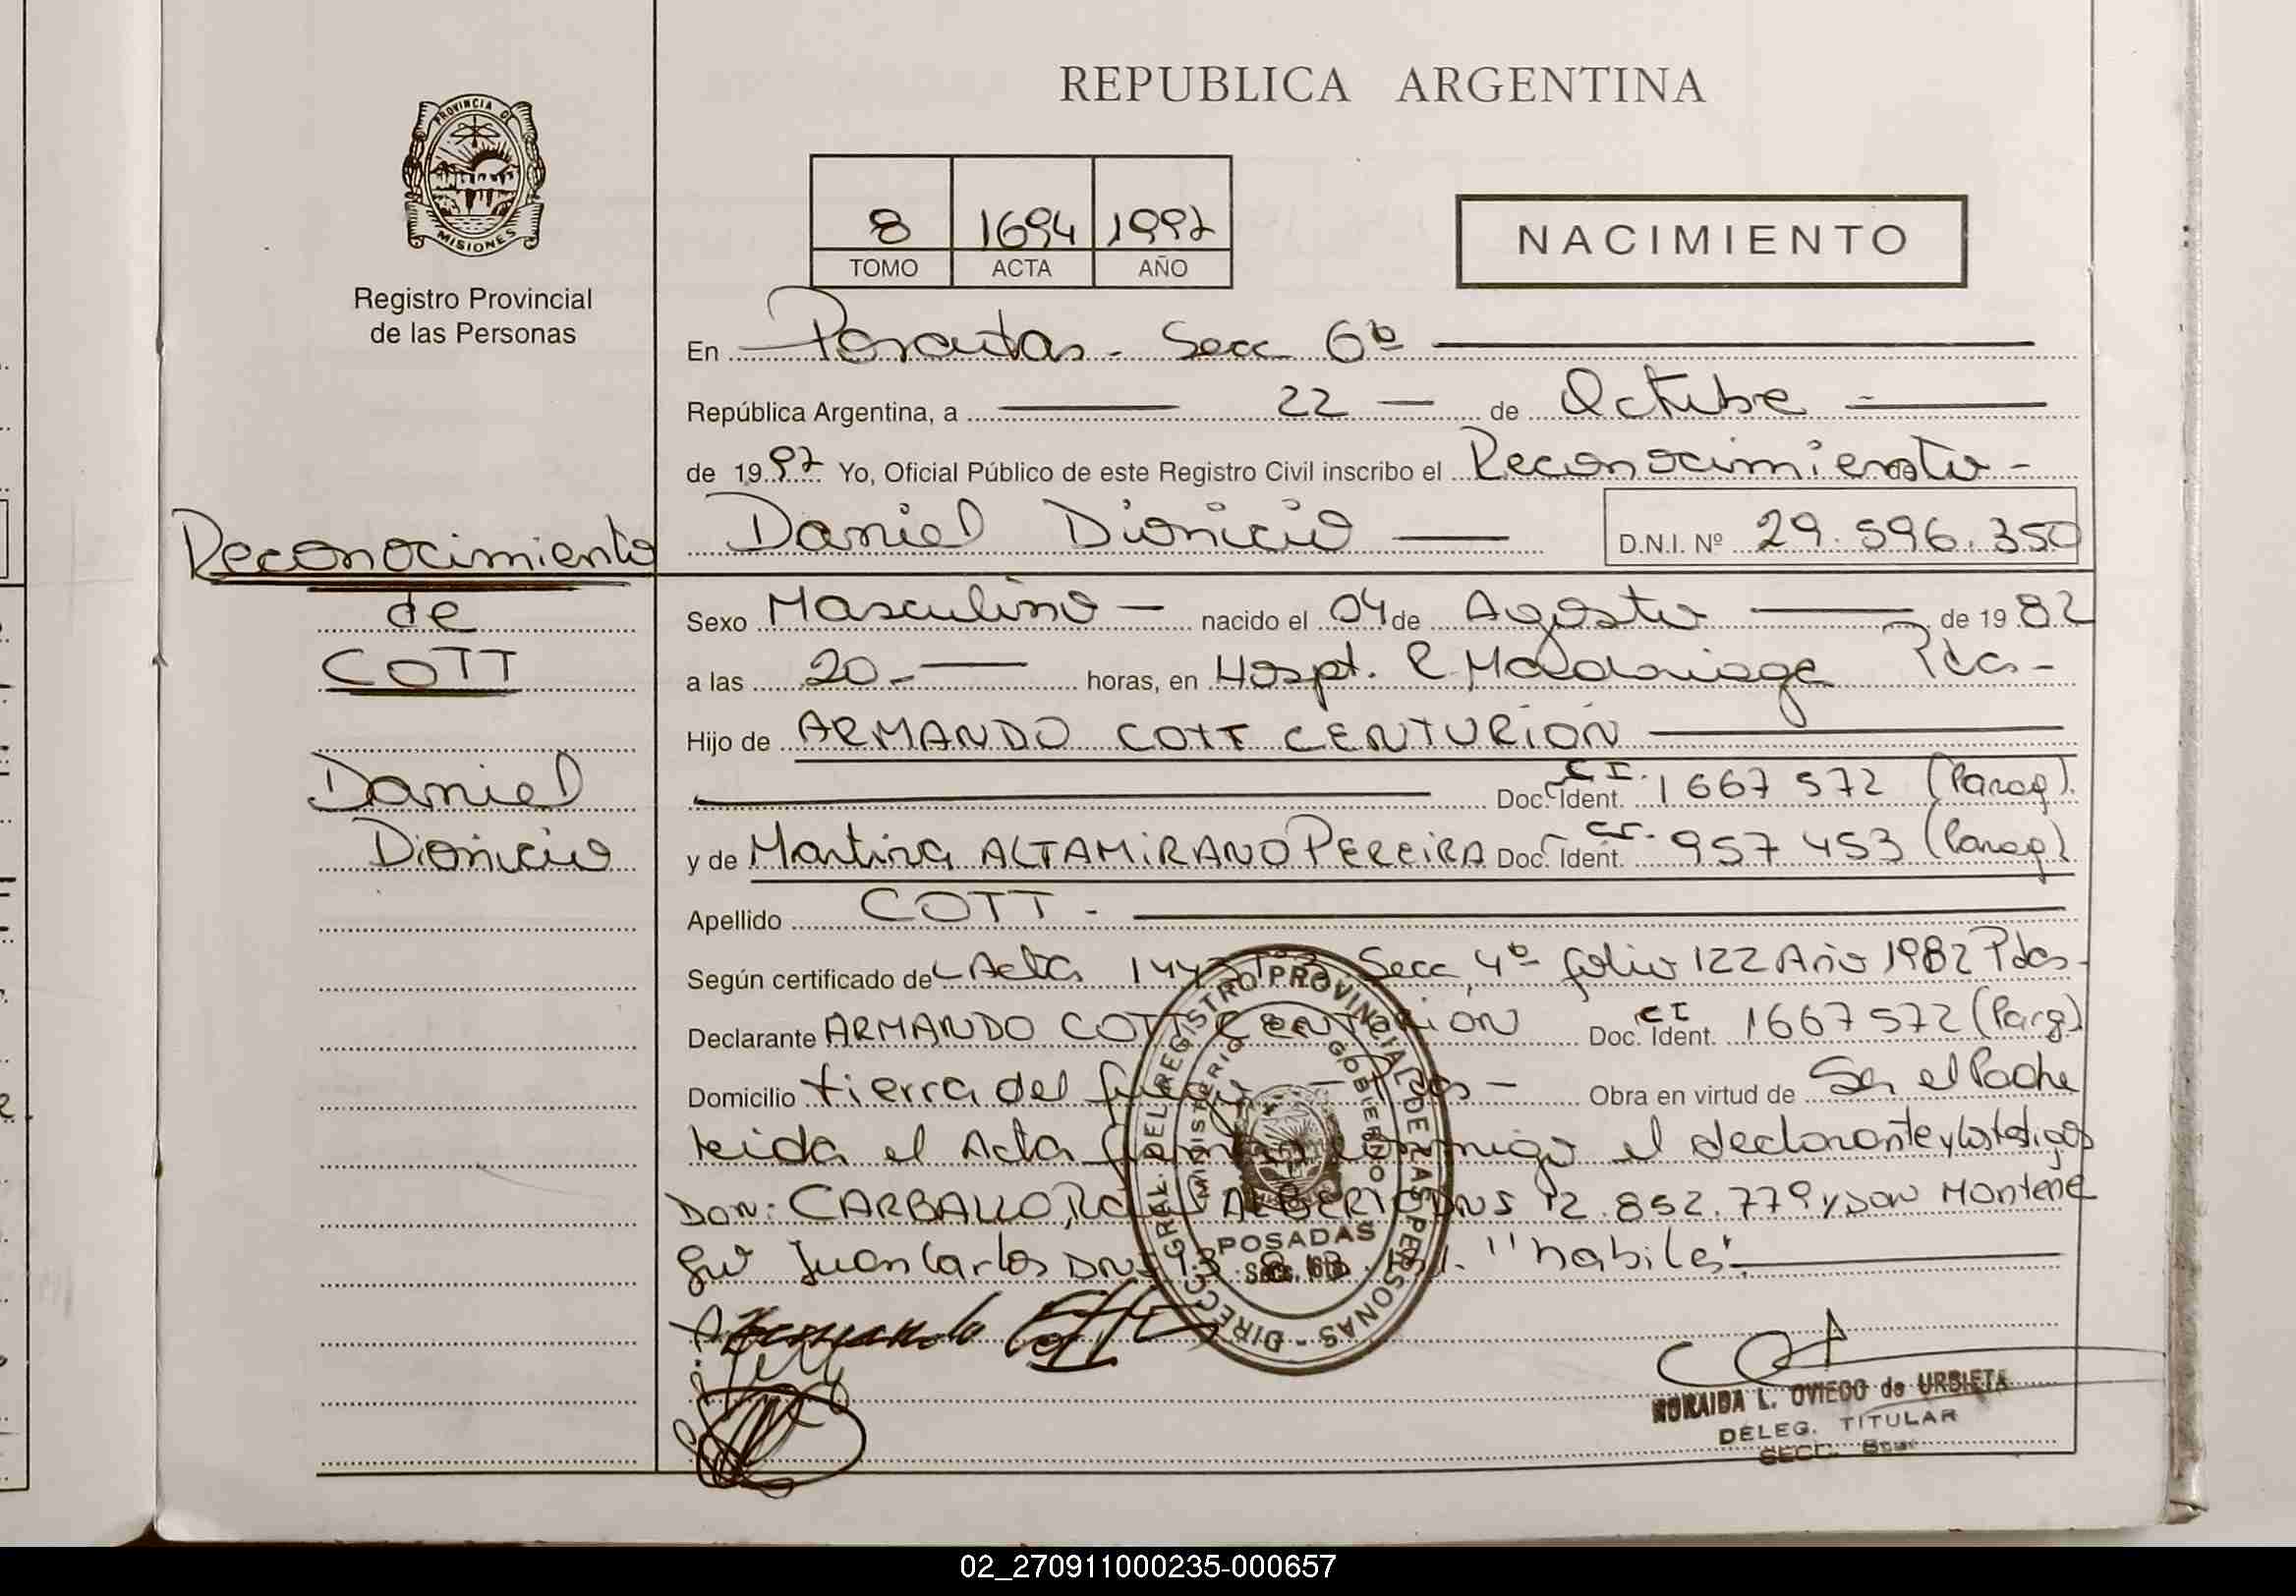 REPUBLICA ARGENTINA
PROVINCIA DE
MISIONES
Registro Provincial
de las Personas
8 1694 1997
TOMO ACTA AÑO
NACIMIENTO
En Posadas - Secc 6ª
República Argentina, a 22 de Octubre
de 1997 Yo, Oficial Público de este Registro Civil inscribo el Reconocimiento
Daniel Dionicio D.N.I. Nº 29.596.350
Reconocimiento
de
COTT
Daniel
Dionicio
Sexo Masculino nacido el 04 de Agosto de 1982
a las 20 horas, en Hospt. R Madariaga Pdas
Hijo de ARMANDO COTT CENTURIÓN
Doc. Ident. CI. 1667 572 (Parag).
y de Martina ALTAMIRANO PEREIRA Doc. Ident. CI. 957 453 (Parag)
Apellido COTT -
Según certificado de Acta Secc 4ª folio 122 Año 1982 Pdas
Declarante ARMANDO COTT CENTURIÓN Doc. Ident. CI 1667 572 (Parg)
Domicilio tierra del fuego - Pdas - Obra en virtud de Ser el Padre
leida el Acta firman conmigo el declarante y los testigos
Don: CARBALLO, ALBERTO DNI 12.852.779 y Don Montene
gro Juan Carlos DNI "habiles".
DIRECC. GRAL. DEL REGISTRO PROVINCIAL DE LAS PERSONAS
MINISTERIO GOBIERNO
POSADAS
Armando Cott
NORAIDA L. OVIEDO de URBIETA
DELEG. TITULAR
SECC.
02_270911000235-000657